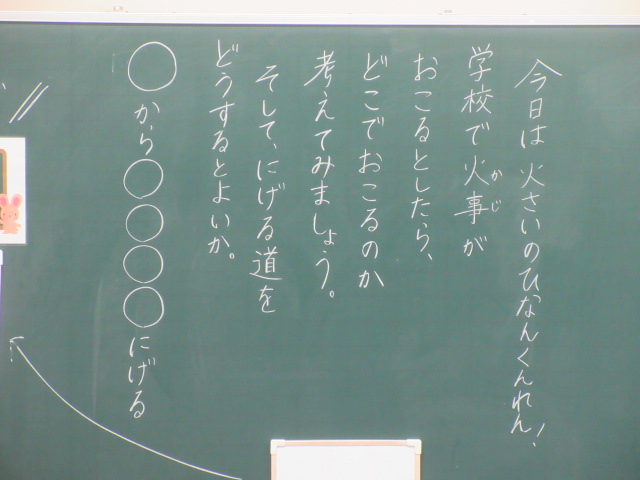 今日は火さいのひなんくんれん!
学校で火事が
かじ
おこるとしたら、
どこでおこるのか
考えてみましょう。
そして、にげる道を
どうするとよいか。
○から○○○○にげる